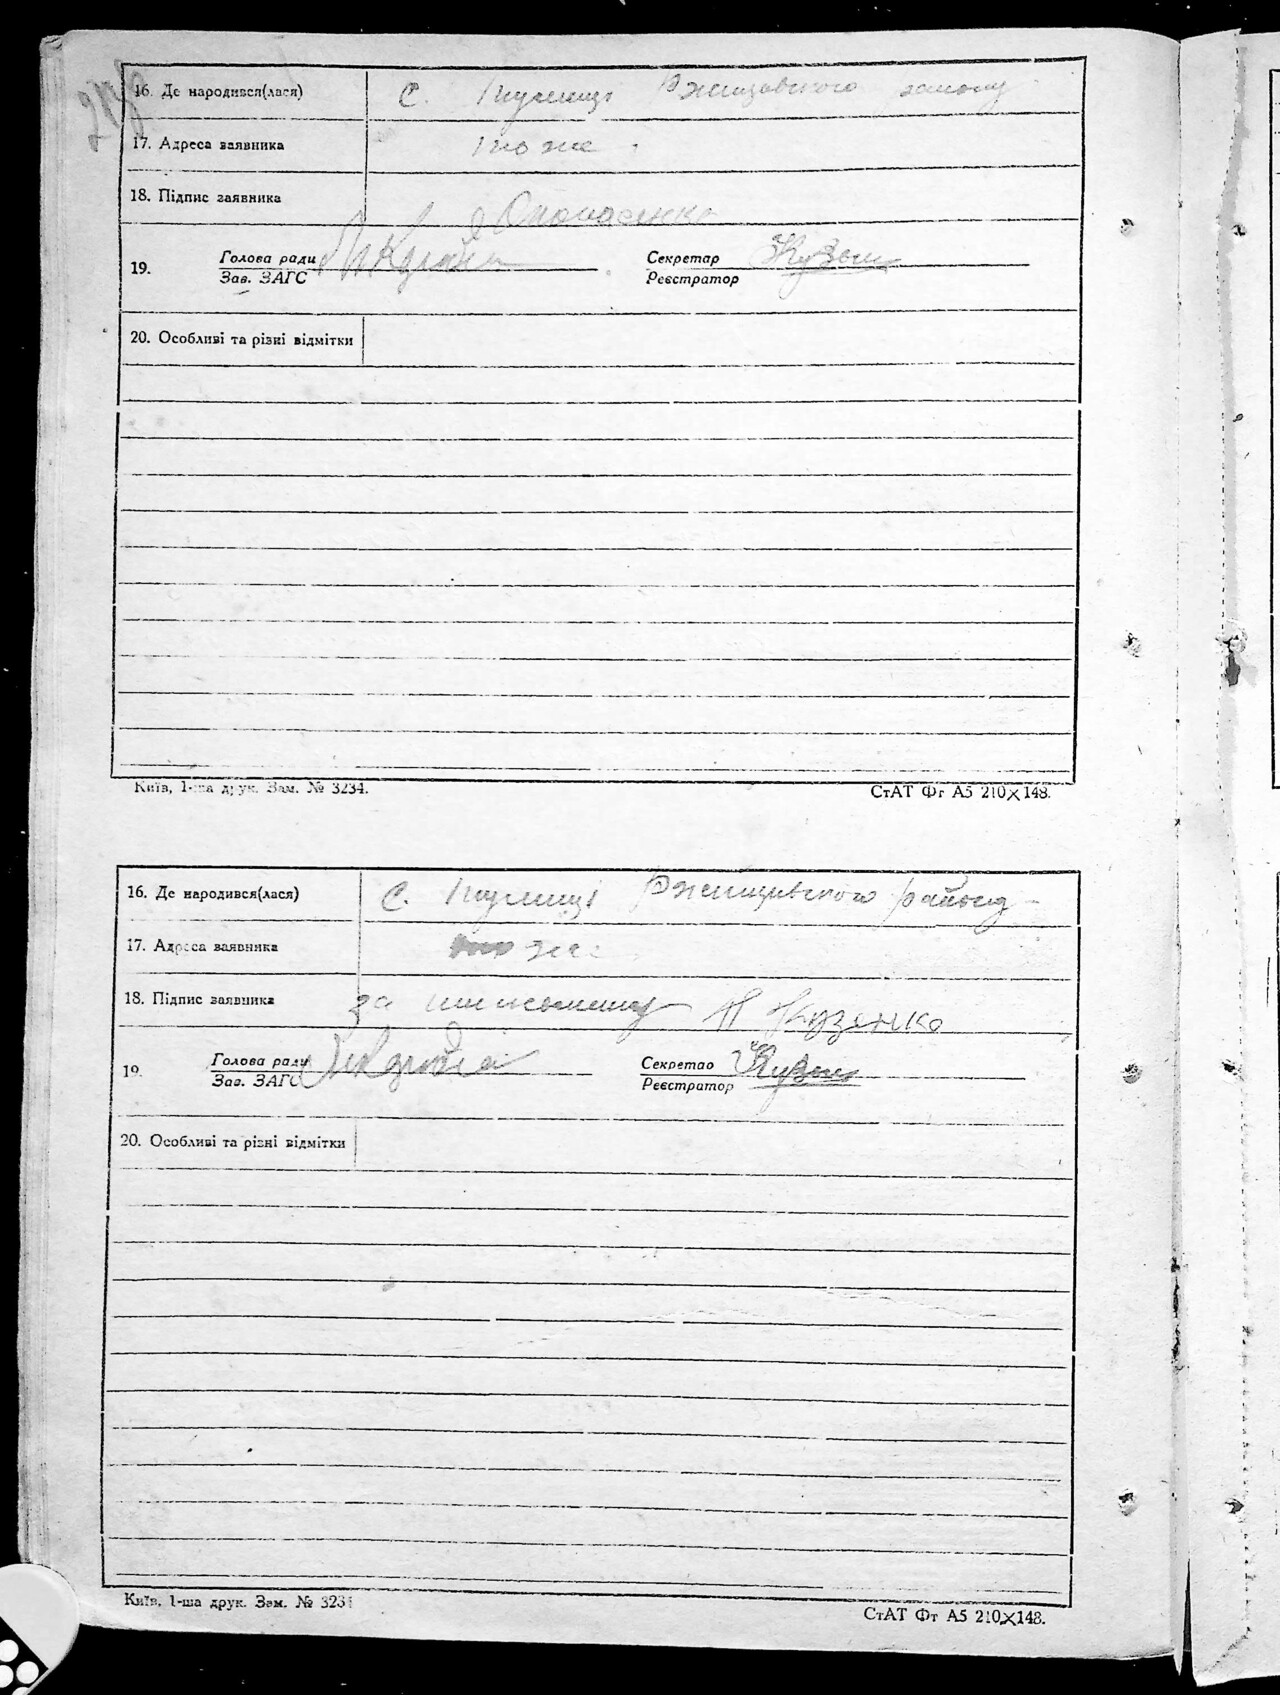 16. Де народився(лася) С. Ржищевского району
17. Адреса заявника тоже
18. Підпис заявника Опанасенко
19. Голова ради Секретар
Зав. ЗАГС Реєстратор
20. Особливі та різні відмітки
Київ, 1-ша друк. Зам. № 3234. СтАТ Фг А5 210×148.
16. Де народився(лася) С. Ржищевского району
17. Адреса заявника тоже
18. Підпис заявника за Кузенко
19. Голова ради Секретар
Зав. ЗАГС Реєстратор
20. Особливі та різні відмітки
Київ, 1-ша друк. Зам. № 3234 СтАТ Фт А5 210×148.